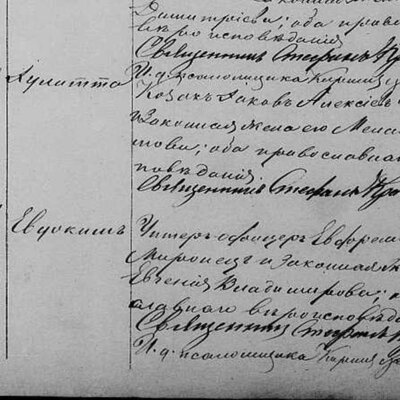 вѣроисповѣданія
Священникъ Стефанъ
И. д. псаломщика Кирилл
Іулитта
Козакъ Іаковъ Алексіев
и законная жена его Мела
това; оба православна
повѣданія
Священникъ Стефанъ
Евдокимъ
Унтеръ-офицеръ Евфрем
Миронецъ и законная
Евгенія Владимірова;
славнаго вѣроисповѣда
Священникъ Стефанъ
И. д. псаломщика Кирилл